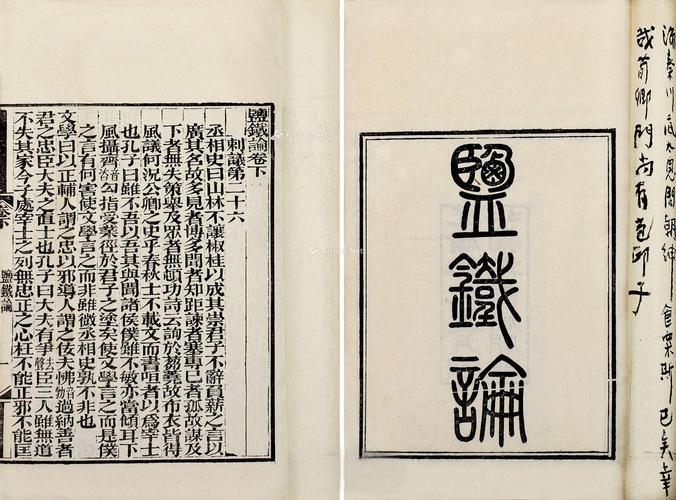 見聞朝紳食粟斯已矣幸
哉荀卿門尚有苞邱子
鹽鐵論
鹽鐵論卷下
刺議第二十六
丞相史曰山林不讓椒桂以成其崇君子不辭負薪之言以
廣其名故多見者博多聞者知距諫者塞專己者孤故謀及
下者無失策舉及眾者無頓功詩云詢於芻蕘故布衣皆得
風議何況公卿之史乎春秋士不載文而書咺者以爲宰士
也孔子曰雖不吾以吾其與聞諸侯僕雖不敏亦當傾耳下
風攝齊句指受業徑於君子之塗矣使文學言之而是僕
之言有何害使文學言之而非雖微丞相史孰不非也
文學曰以正輔人謂之忠以邪導人謂之佞夫怫過納善者
君之忠臣大夫之直士也孔子曰大夫有爭臣三人雖無道
不失其家今子處宰士之列無忠正之心枉不能正邪不能匡
鹽鐵論